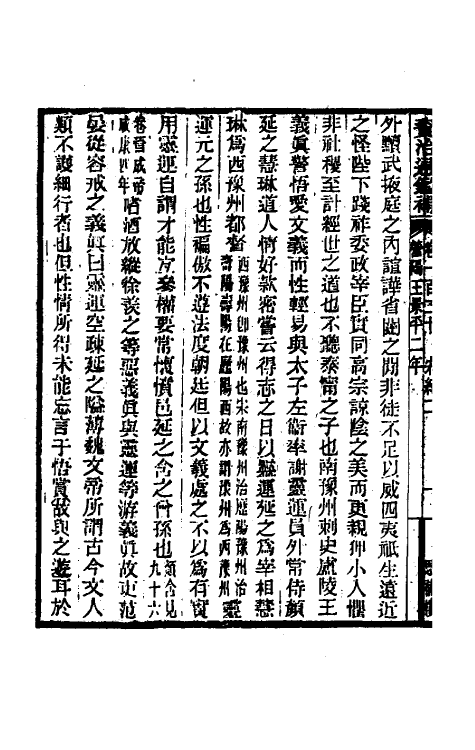 資治通鑑補 營陽王景平二年
外黷武掖庭之內諠譁省闥之閒非徒不足以威四夷祗生遠近
之怪陛下踐祚委政宰臣實同高宗諒陰之美而更親狎小人懼
非社稷至計經世之道也不聽泰甯之子也南豫州刺史廬陵王
義眞警悟愛文義而性輕易與太子左衞率謝靈運員外常侍顏
延之慧琳道人情好款密嘗云得志之日以靈運延之爲宰相慧
琳爲西豫州都督西豫州卽豫州也宋南豫州治歷陽豫州治壽陽壽陽在歷陽西故亦謂豫州爲西豫州靈
運元之孫也性褊傲不遵法度朝廷但以文義處之不以爲有實
用靈運自謂才能宜參權要常懷憤邑延之含之曾孫也顏含見九十六
卷晉成帝咸康四年嗜酒放縱徐羨之等惡義眞與靈運等游義眞故吏范
晏從容戒之義眞曰靈運空疎延之隘薄魏文帝所謂古今文人
類不護細行者也但性情所得未能忘言于悟賞故與之遊耳於